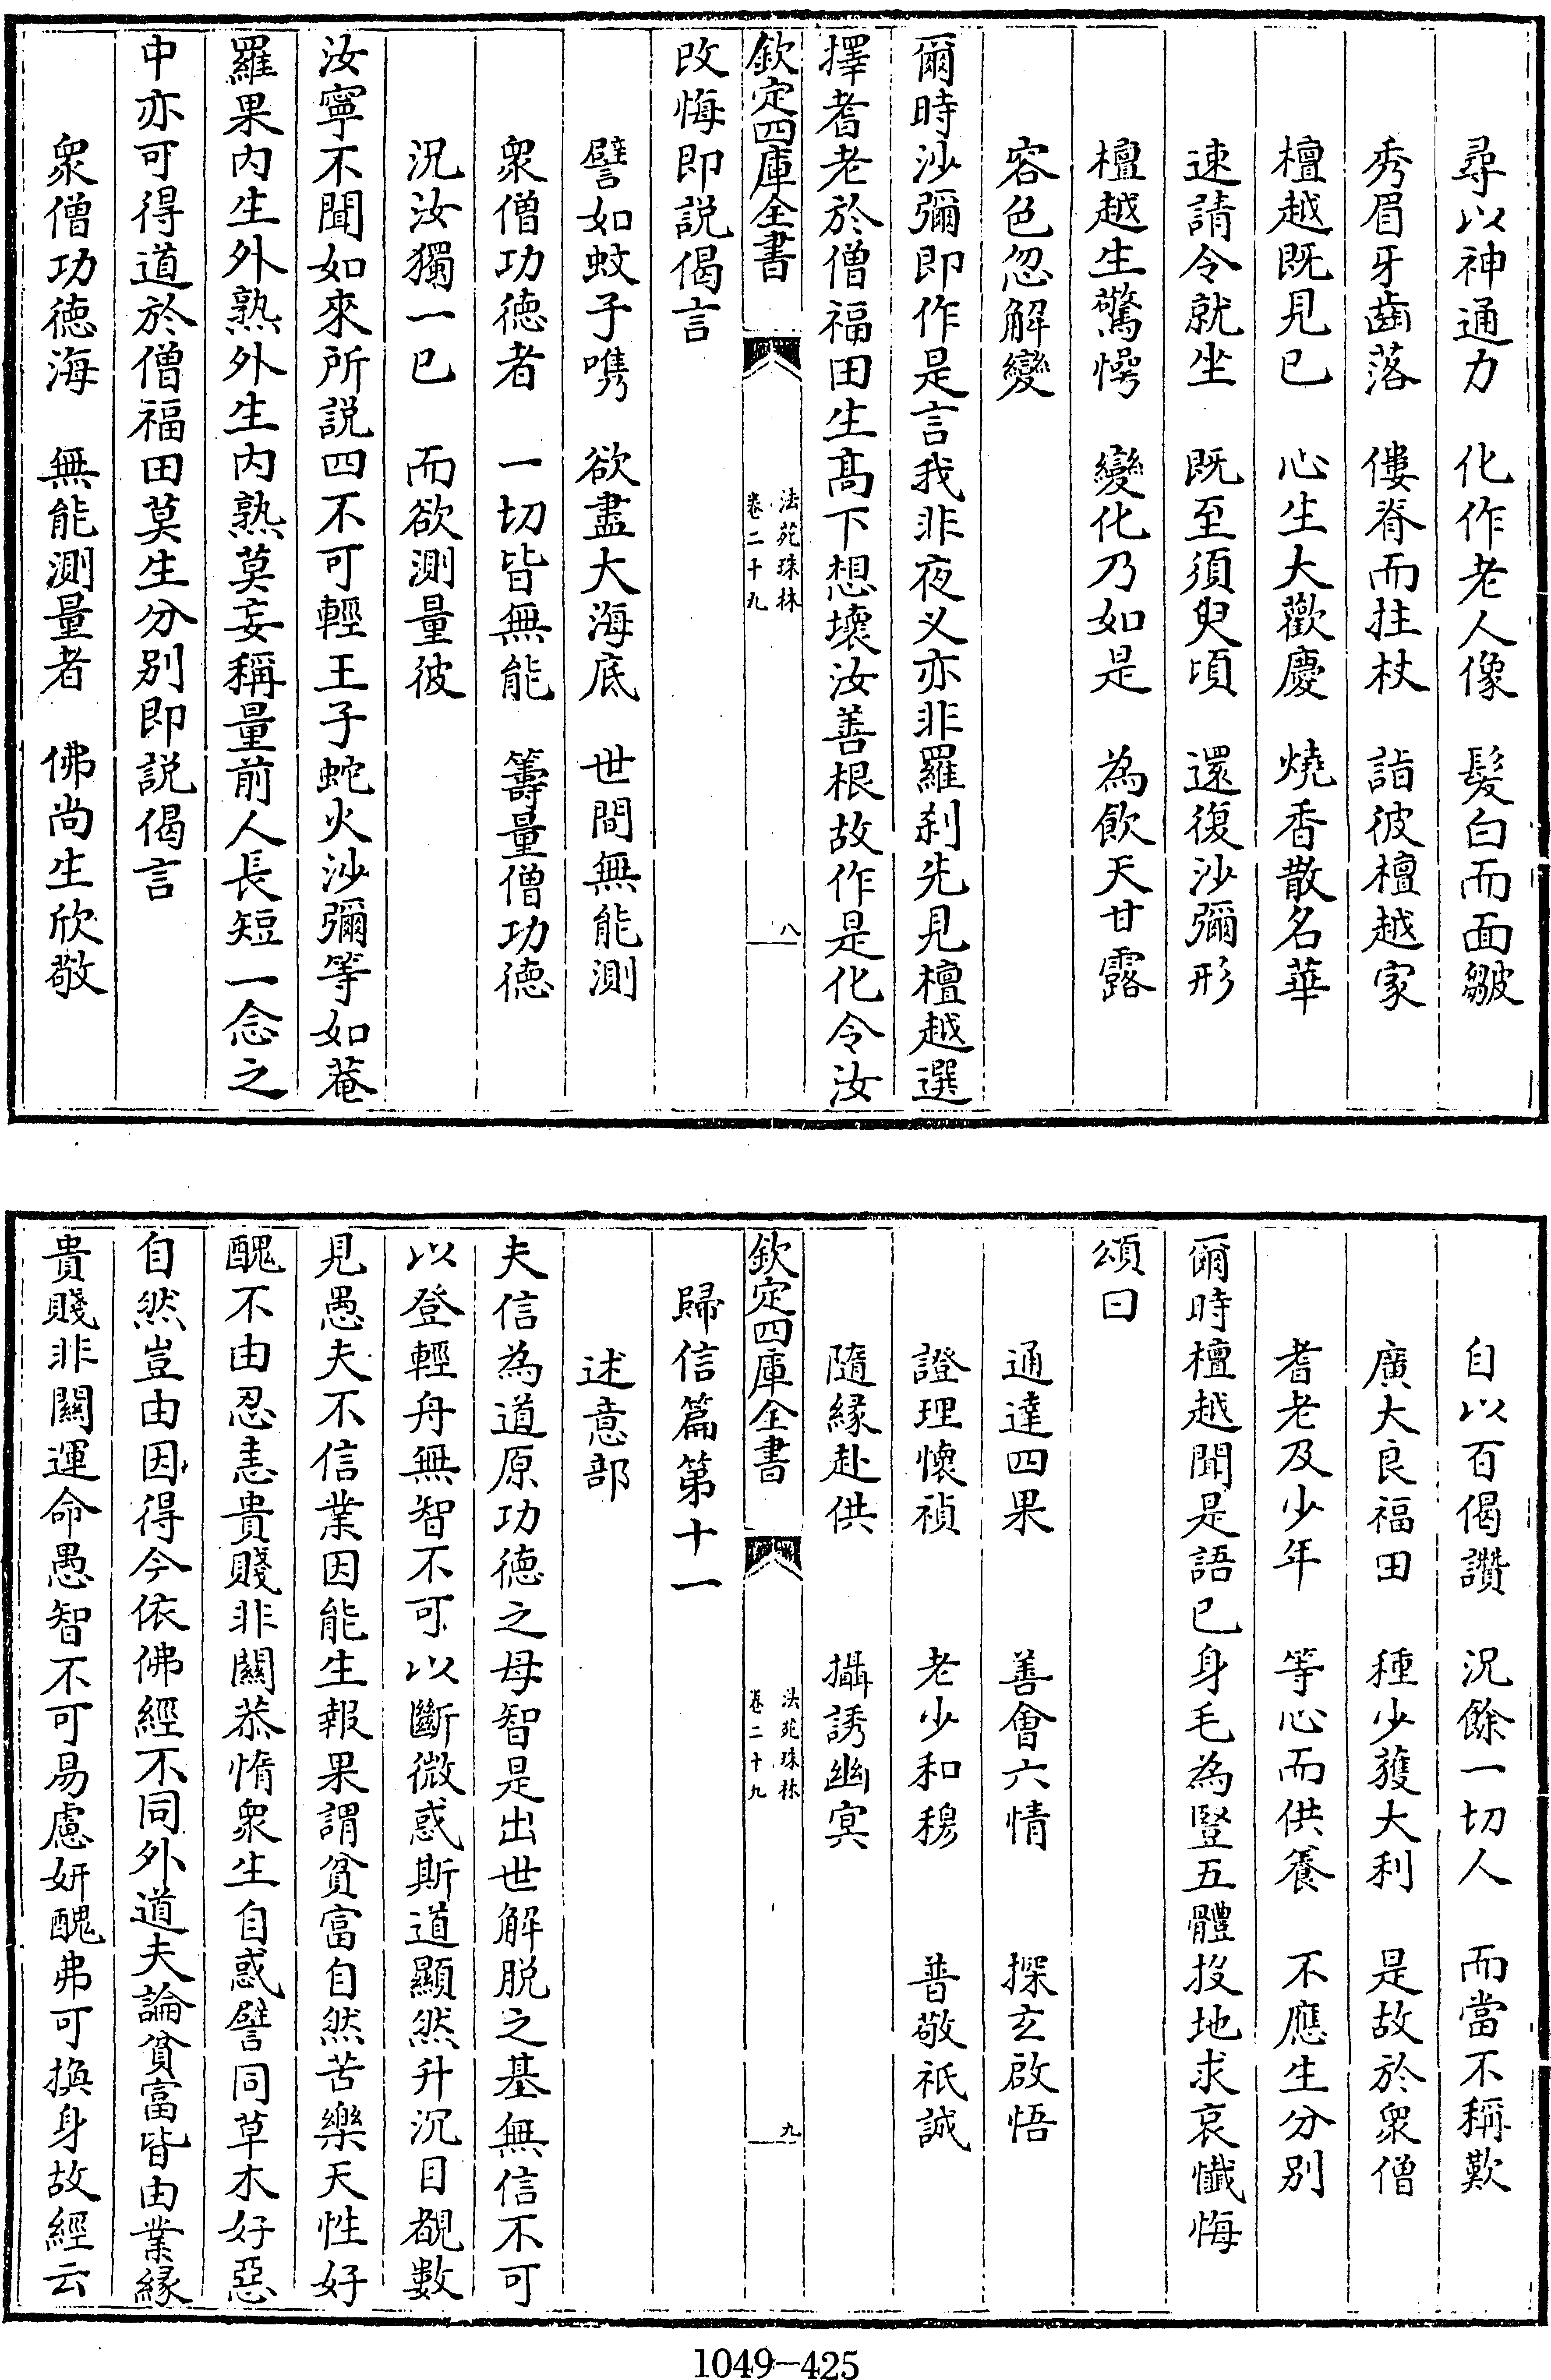 尋以神通力　化作老人像　髮白而面皺
秀眉牙齒落　僂脊而拄杖　詣彼檀越家
檀越既見已　心生大歡慶　燒香散名華
速請令就坐　既至須臾頃　還復沙彌形
檀越生驚愕　變化乃如是　為飲天甘露
容色忽解變
爾時沙彌即作是言我非夜义亦非羅刹先見檀越選
擇耆老於僧福田生髙下想壞汝善根故作是化令汝
欽定四庫全書
法苑珠林
卷二十九
八
改悔即說偈言
譬如蚊子嘴　欲盡大海底　世間無能測
衆僧功徳者　一切皆無能　籌量僧功徳
況汝獨一已　而欲測量彼
汝寧不聞如來所說四不可輕王子蛇火沙彌等如菴
羅果内生外熟外生内熟莫妄稱量前人長短一念之
中亦可得道於僧福田莫生分别即說偈言
衆僧功徳海　無能測量者　佛尚生欣敬
自以百偈讚　況餘一切人　而當不稱歎
廣大良福田　種少獲大利　是故於衆僧
耆老及少年　等心而供養　不應生分别
爾時檀越聞是語已身毛為豎五體投地求哀懺悔
頌曰
通達四果　善會六情　探玄啟悟
證理懷禎　老少和穆　普敬祇誠
隨緣赴供　攝誘幽冥
欽定四庫全書
法苑珠林
卷二十九
九
歸信篇第十一
述意部
夫信為道原功徳之母智是出世解脱之基無信不可
以登輕舟無智不可以斷微惑斯道顯然升沉目覩數
見愚夫不信業因能生報果謂貧富自然苦樂天性好
醜不由忍恚貴賤非關恭惰衆生自惑譬同草木好惡
自然豈由因得今依佛經不同外道夫論貧富皆由業緣
貴賤非關運命愚智不可易慮妍醜弗可換身故經云
1049-425